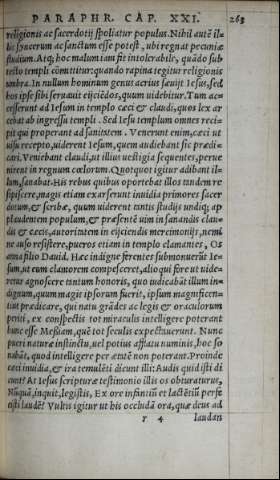 PARAPHR. CAP. XXI. 263
religionis ac sacerdotij spoliatur populus. Nihil autē il-
lic syncerum ac sanctum esse potest, ubi regnat pecuniæ
studium. Atq; hoc malum tam fit intolerabile, quādo sub
tecto templi cōmittitur: quando rapina tegitur religionis
umbra. In nullum hominum genus acrius sæuijt Iesus, sed
hos ipse sibi seruauit eijciēdos, quum uidebitur. Tum ac-
cesserunt ad Iesum in templo cæci & claudi, quos lex ar
cebat ab ingressu templi. Sed Iesu templum omnes reci-
pit qui properant ad sanitatem. Venerunt enim, cæci ut
uisu recepto, uiderent Iesum, quem audiebant sic prædi-
cari. Veniebant claudi, ut illius uestigia sequentes, perue
nirent in regnum cœlorum. Quotquot igitur adibant il-
lum, sanabat. His rebus quibus oportebat illos tandem re
sipiscere, magis etiam exarserunt inuidia primores sacer
dotum, & scribæ, quum uiderent tantis studijs undiq; ap
plaudentem populum, & præsentē uim in sanandis clau-
dis & cæcis, autoritatem in eijciendis mercimonijs, nemi
ne auso resistere, pueros etiam in templo clamantes, Os
anna filio Dauid. Hæc indigne ferentes submonuerūt Ie-
sum, ut eum clamorem compesceret, alioqui fore ut uide-
retur agnoscere tantum honoris, quo iudicabāt illum in-
dignum, quum magis ipsorum fuerit, ipsum magnificen-
tius prædicare, qui natu grādes ac legis & oraculorum
periti, ex conspectis tot miraculis intelligere poterant
hunc esse Messiam, quē tot seculis expectauerunt. Nunc
pueri naturæ instinctu, uel potius afflatu numinis, hoc so
nabāt, quod intelligere per ætatē non poterant. Proinde
cæci inuidia, & ira temulēti dicunt illi: Audis quid isti di
cunt? At Iesus scripturæ testimonio illis os obturaturus,
Nūquā, inquit, legistis, Ex ore infantiū et lactētiū perfe
cisti laudē? Vultis igitur ut his occludā ora, quæ deus ad
r 4 laudan